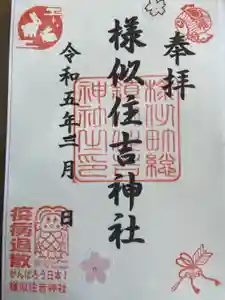 奉拝
様似住吉神社
様似町総
鎮守
神社之印
令和五年三月 日
疫病退散
がんばろう日本!
様似住吉神社